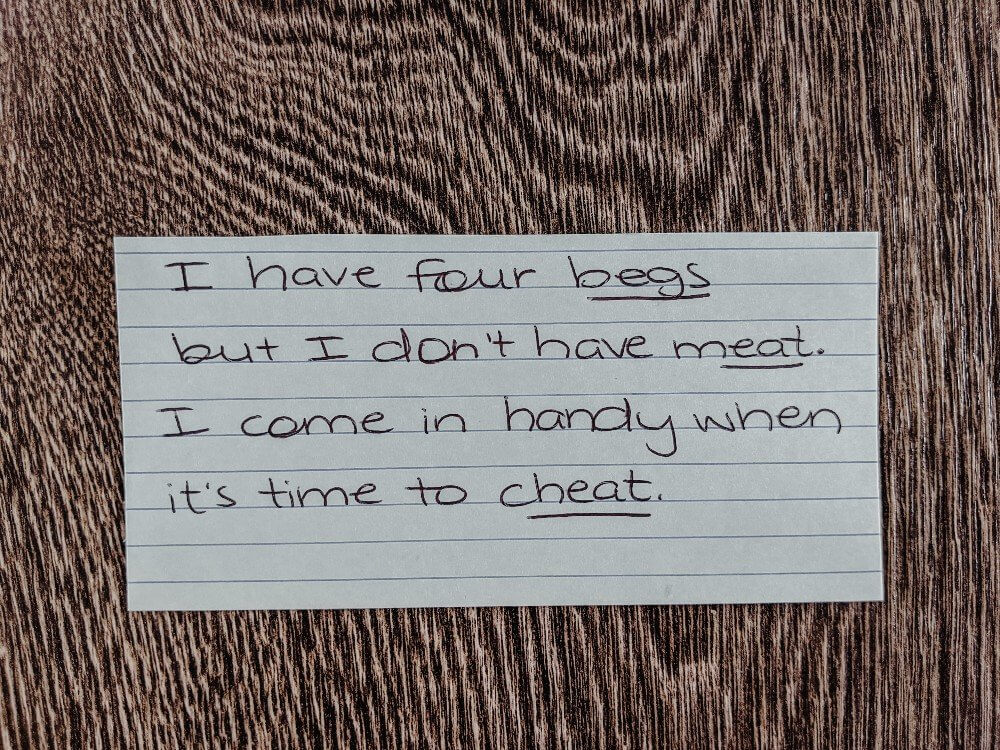 I have four begs
but I don't have meat.
I come in handy when
it's time to cheat.